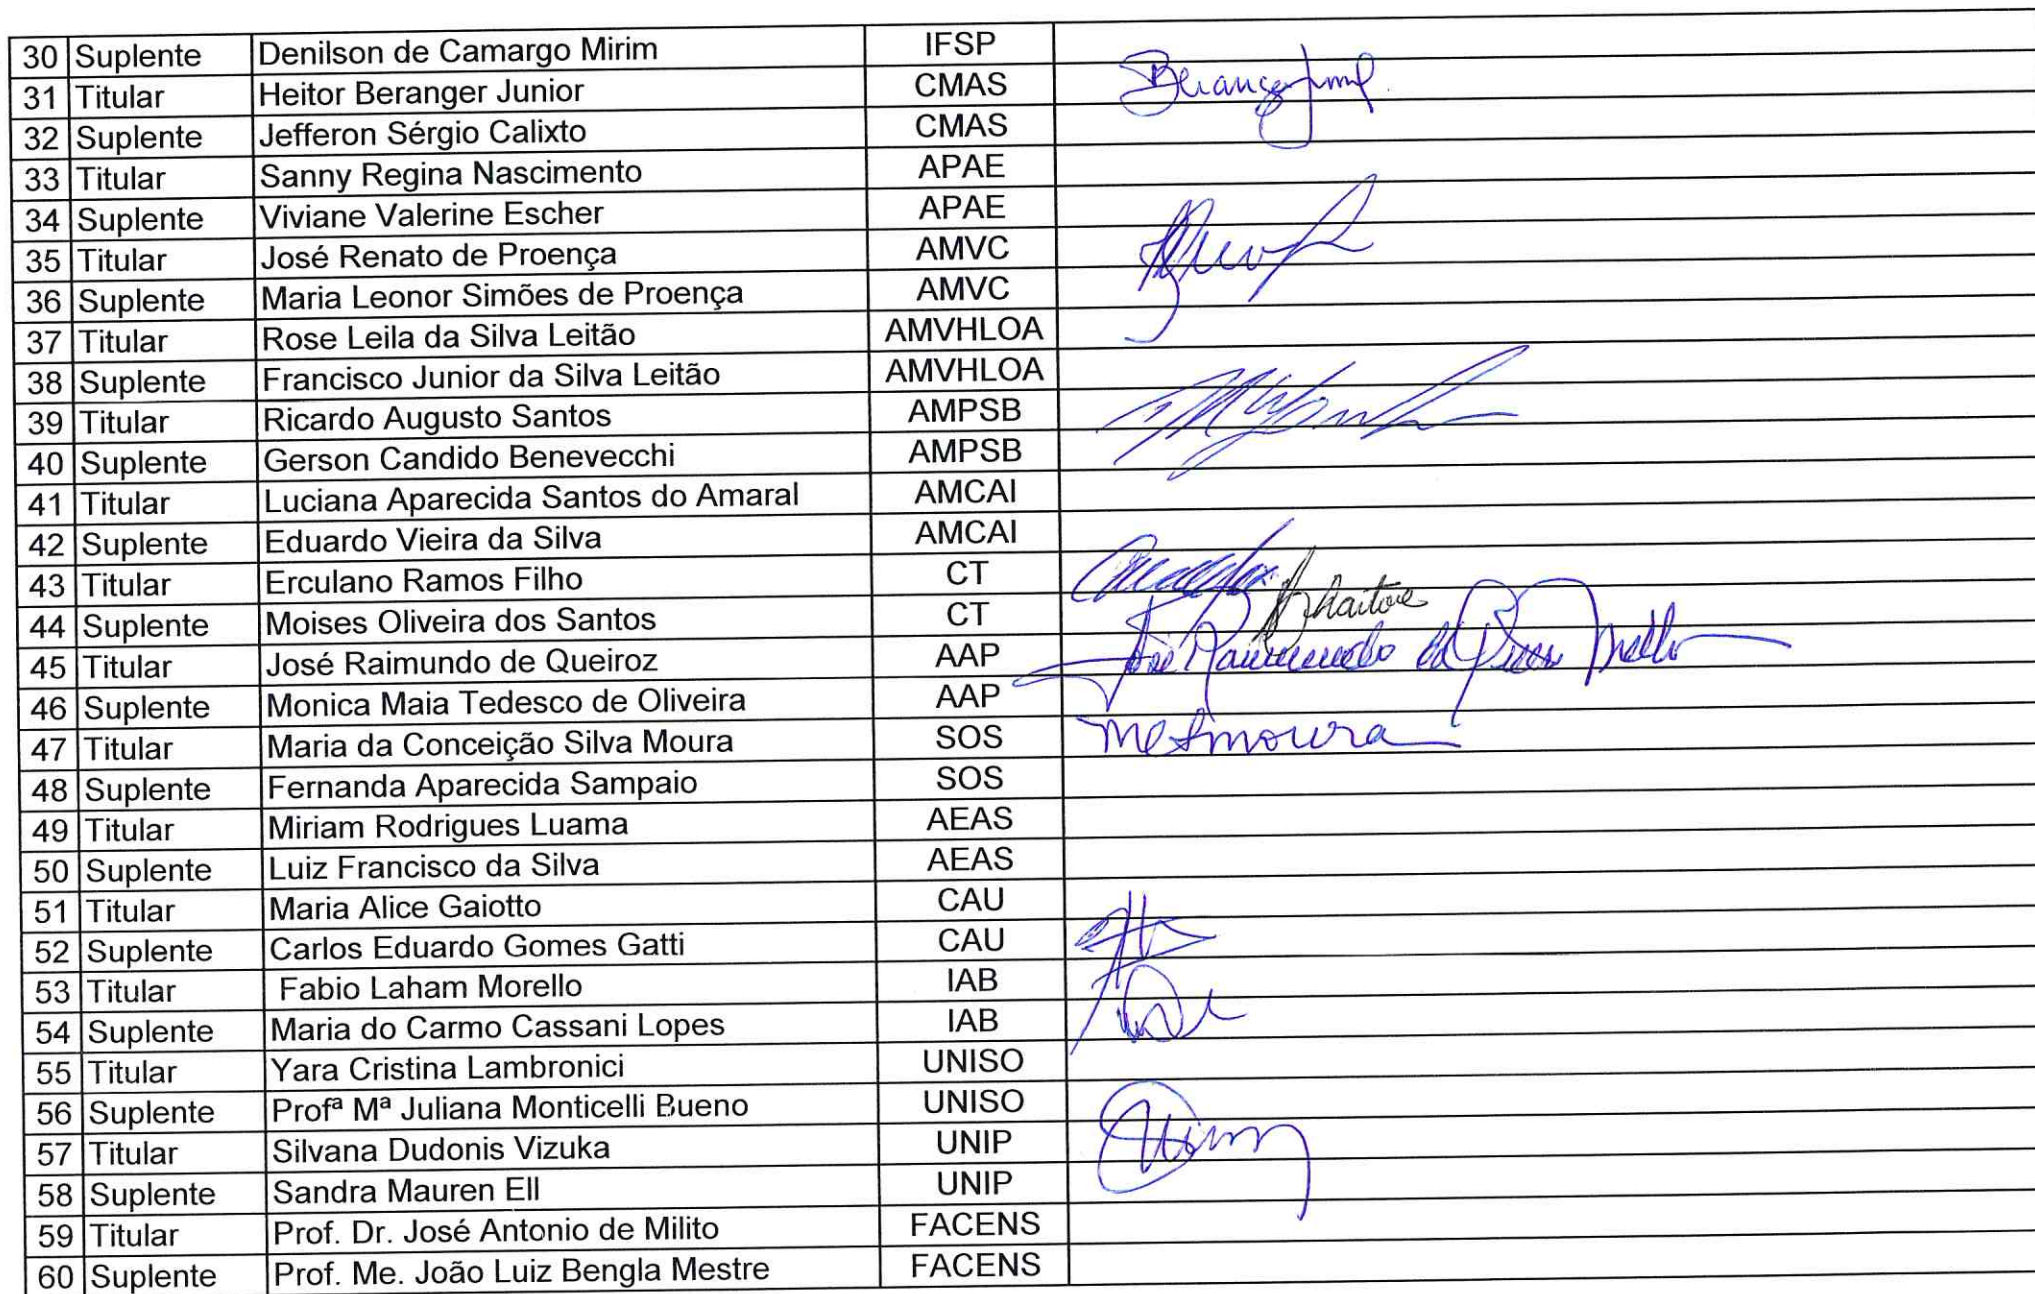 30 Suplente Denilson de Camargo Mirim IFSP
31 Titular Heitor Beranger Junior CMAS
32 Suplente Jefferon Sérgio Calixto CMAS
33 Titular Sanny Regina Nascimento APAE
34 Suplente Viviane Valerine Escher APAE
35 Titular José Renato de Proença AMVC
36 Suplente Maria Leonor Simões de Proença AMVC
37 Titular Rose Leila da Silva Leitão AMVHLOA
38 Suplente Francisco Junior da Silva Leitão AMVHLOA
39 Titular Ricardo Augusto Santos AMPSB
40 Suplente Gerson Candido Benevecchi AMPSB
41 Titular Luciana Aparecida Santos do Amaral AMCAI
42 Suplente Eduardo Vieira da Silva AMCAI
43 Titular Erculano Ramos Filho CT
44 Suplente Moises Oliveira dos Santos CT
45 Titular José Raimundo de Queiroz AAP José Raimundo de
46 Suplente Monica Maia Tedesco de Oliveira AAP
47 Titular Maria da Conceição Silva Moura SOS
48 Suplente Fernanda Aparecida Sampaio SOS
49 Titular Miriam Rodrigues Luama AEAS
50 Suplente Luiz Francisco da Silva AEAS
51 Titular Maria Alice Gaiotto CAU
52 Suplente Carlos Eduardo Gomes Gatti CAU
53 Titular Fabio Laham Morello IAB
54 Suplente Maria do Carmo Cassani Lopes IAB
55 Titular Yara Cristina Lambronici UNISO
56 Suplente Profª Mª Juliana Monticelli Bueno UNISO
57 Titular Silvana Dudonis Vizuka UNIP
58 Suplente Sandra Mauren Ell UNIP
59 Titular Prof. Dr. José Antonio de Milito FACENS
60 Suplente Prof. Me. João Luiz Bengla Mestre FACENS